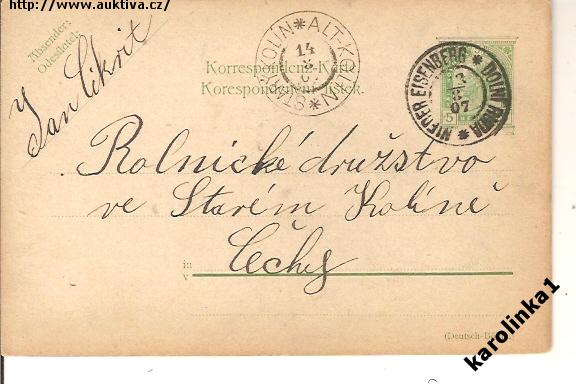 http://www.auktiva.cz/
Absender:
Odesílatel:
Jan Cikrit
STARÝ KOLÍN * ALT-KOLIN *
14
Korrespondenz-Karte
Korespondenční lístek.
NIEDER EISENBERG * DOLNÍ RUDA *
07
5
Rolnické družstvo
ve Starém Kolíně
in
v
Čechy
(Deutsch-Böhm.)
karolinka1